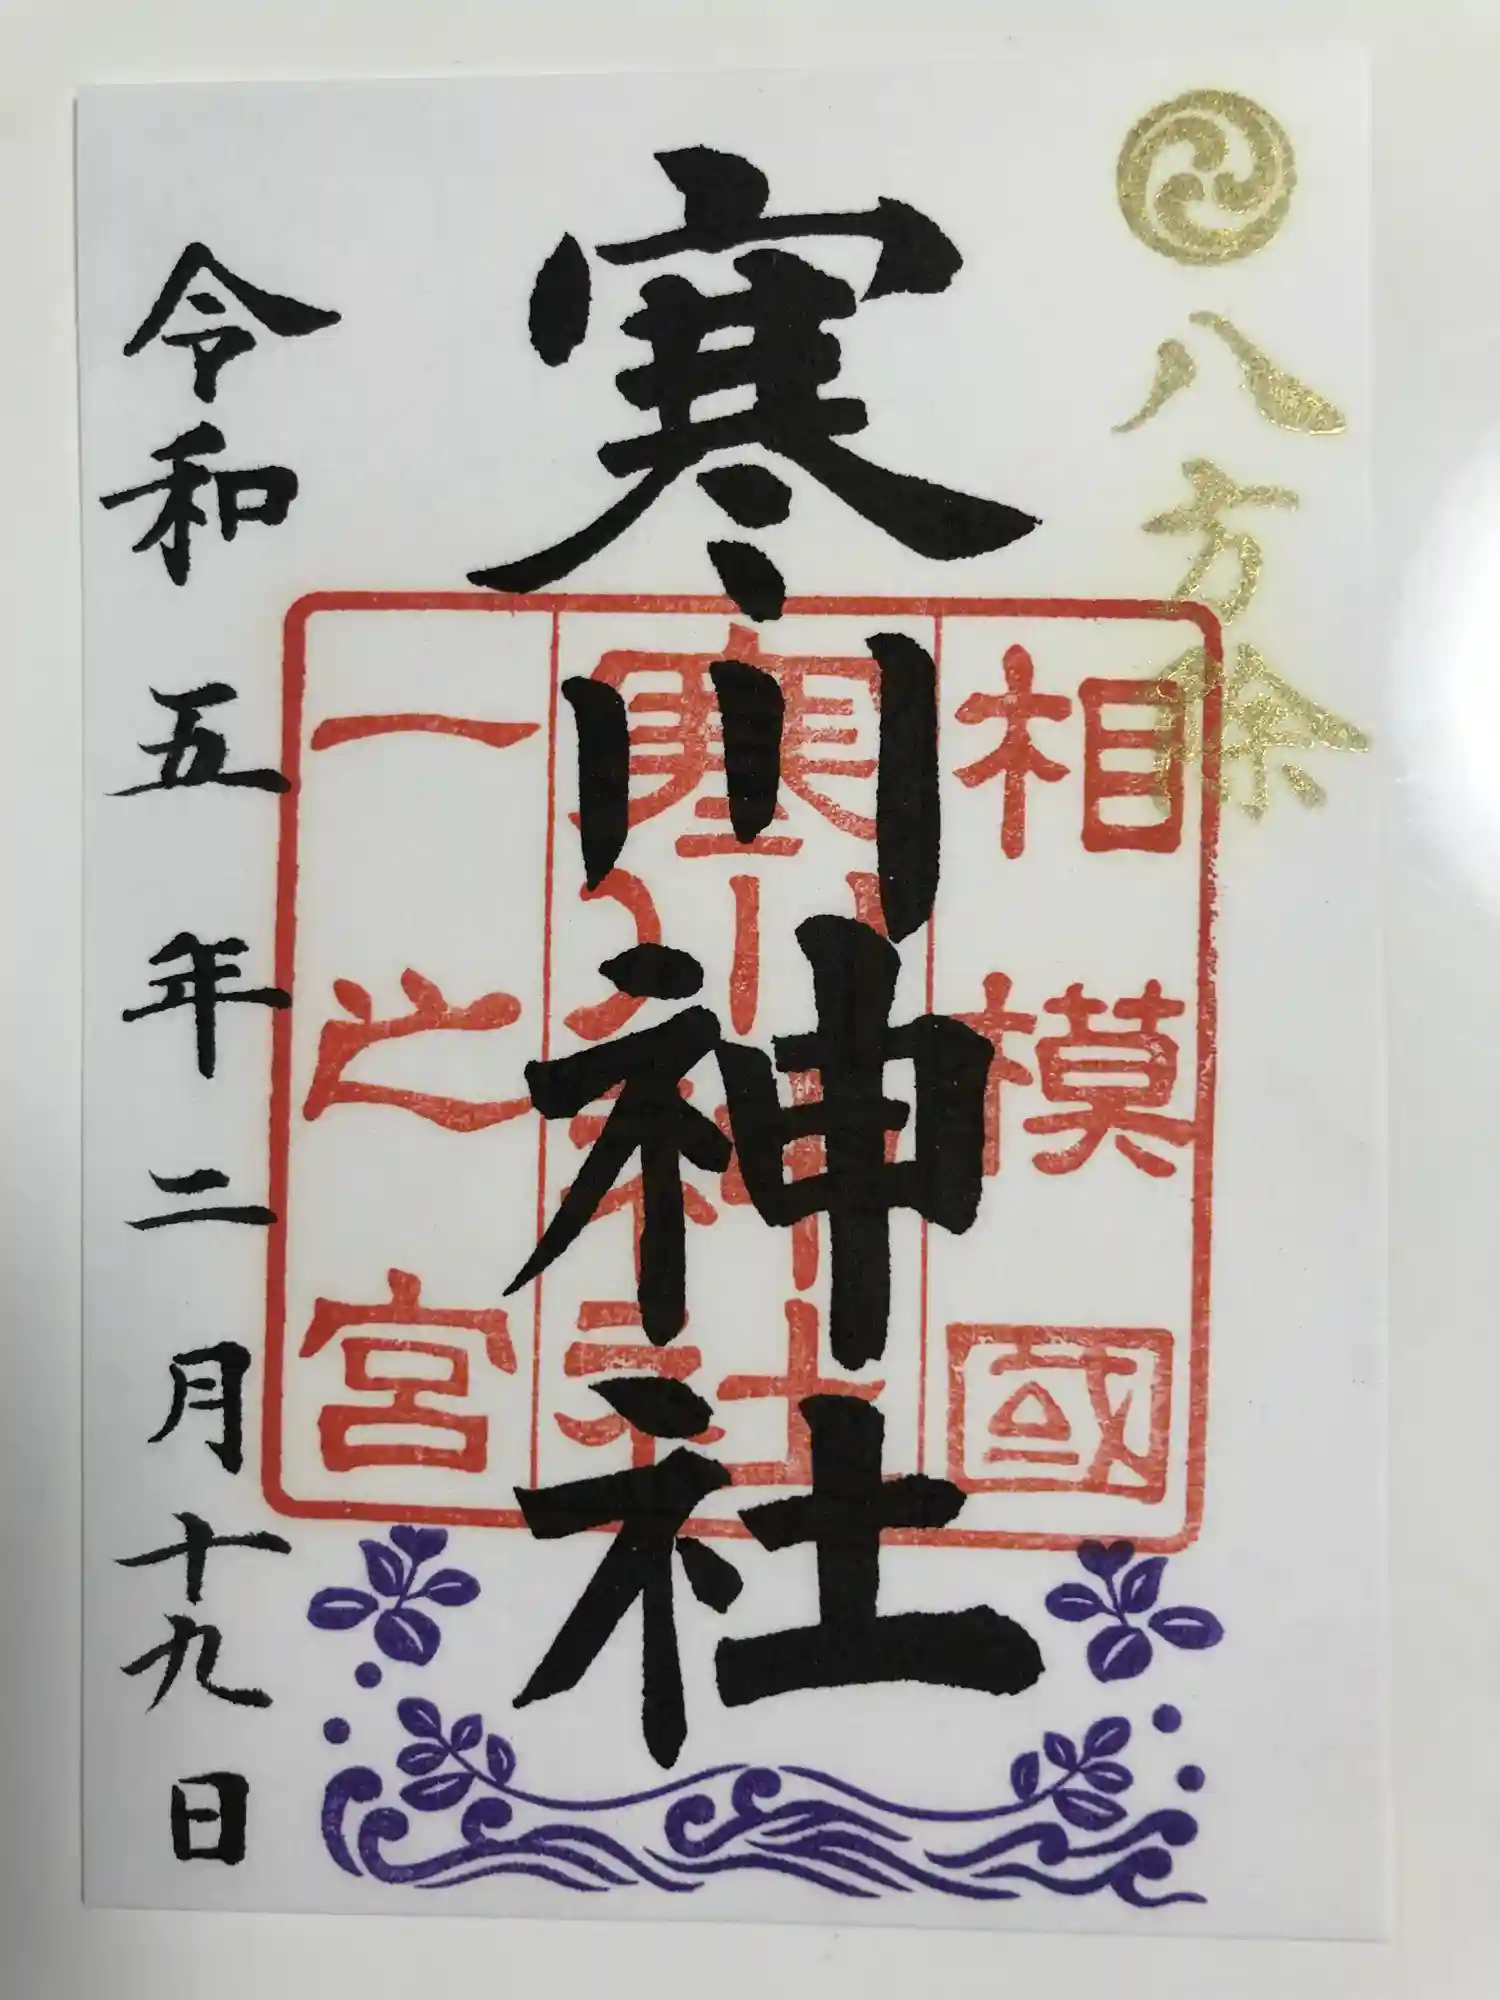 八方除
寒川神社
相模國
寒川神社
一之宮
令和五年二月十九日